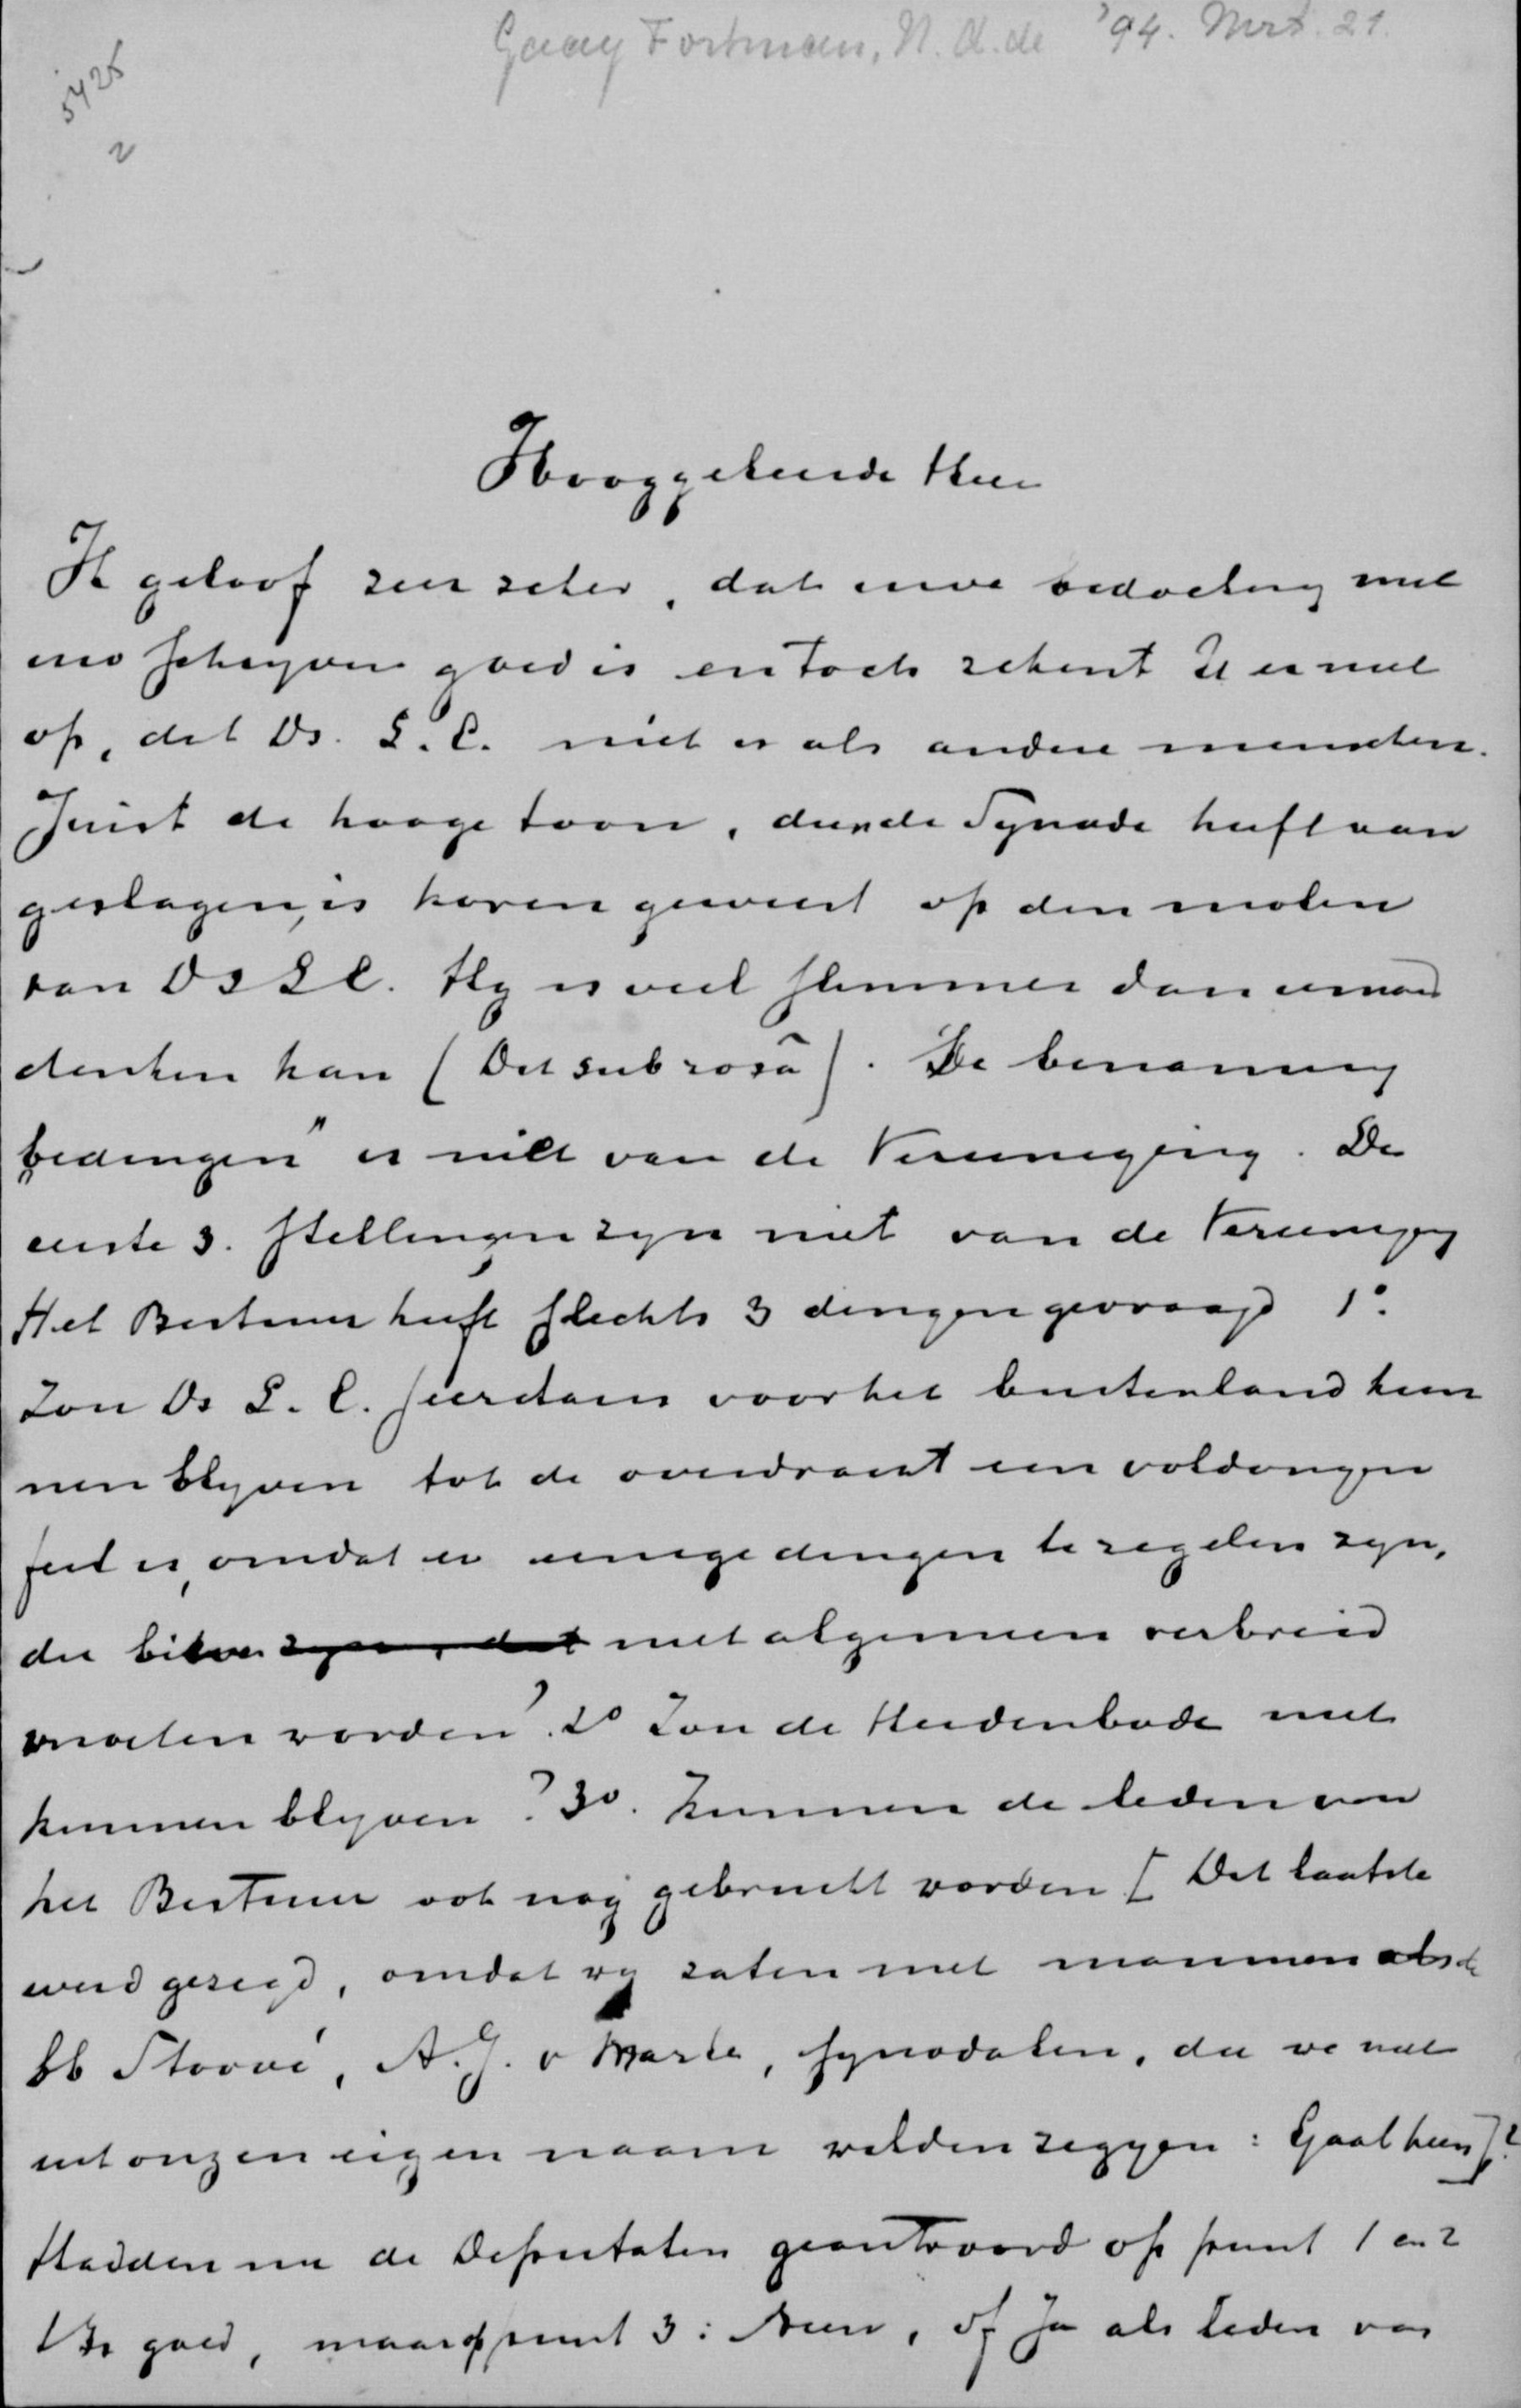 Gaay Fortman, N. A. de '94. Mrt. 21.
5425
2
Hooggeleerde Heer
Ik geloof zeer zeker, dat uwe bedoeling met
uw schryven goed is en toch rekent U er niet
op, dat Ds. L. C. niet is als andere menschen.
Juist de hooge toon, dien de Synode heeft aan
geslagen, is koren geweest op den molen
van Ds L C. Hy is veel slimmer dan iemand
denken kan (Dit sub rosâ). De benaming
„bedingen" is niet van de Vereeniging. De
eerste 3. stellingen zyn niet van de Vereeniging
Het Bestuur heeft slechts 3 dingen gevraagd 1°.
Zou Ds L. C. secretaris voor het buitenland kun
nen blyven tot de overdracht een voldongen
feit is, omdat er eenige dingen te regelen zyn,
die liever niet algemeen verbreid
moeten worden? 2° Zou de Heidenbode niet
kunnen blyven? 3°. Kunnen de leden van
het Bestuur ook nog gebruikt worden [Dit laatste
werd gezegd, omdat wy zaten met mannen als de
bb Stoové, A. J. v Marle, synodalen, die we niet
uit onzen eigen naam wilden zeggen: Gaat heen]?
Hadden nu de Deputaten geantwoord op punt 1 en 2
goed, maar op punt 3: Neen, of Ja als leden van